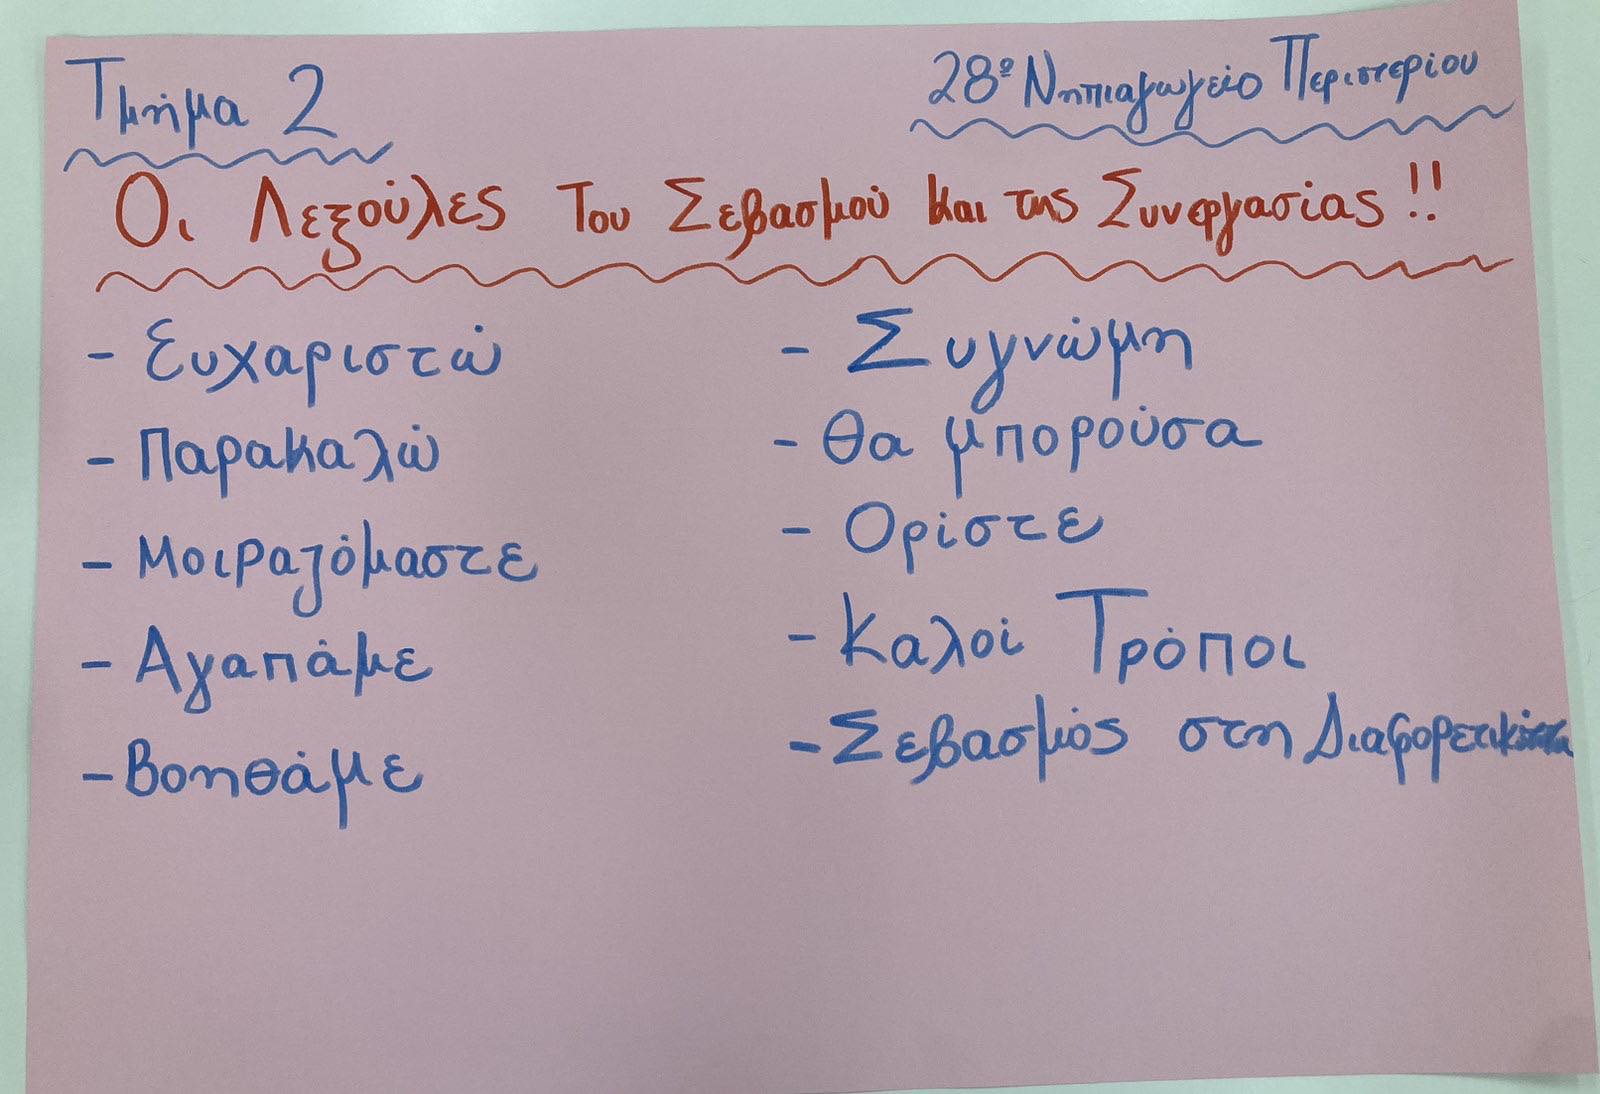 Τμήμα 2
28º Νηπιαγωγείο Περιστερίου
Οι Λεξούλες Του Σεβασμού και της Συνεργασίας!!
- Ευχαριστώ
- Παρακαλώ
- Μοιραζόμαστε
- Αγαπάμε
- Βοηθάμε
- Συγνώμη
- Θα μπορούσα
- Ορίστε
- Καλοί Τρόποι
- Σεβασμός στη Διαφορετικότητα